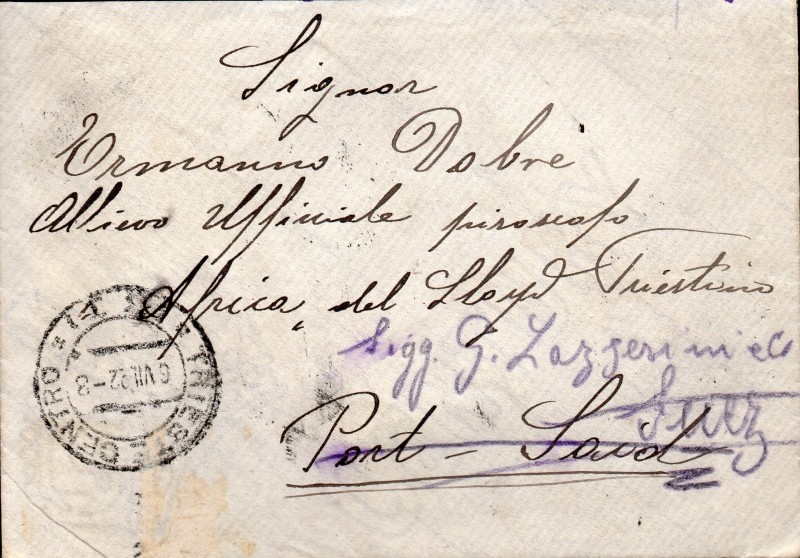 Signor
Ermanno Dobre
Allievo Ufficiale piroscafo
"Africa" del Lloyd Triestino
Sigg. G. Lazzerini e C.
Suez
Port - Said
TRIESTE CENTRO
6 VII.22-8